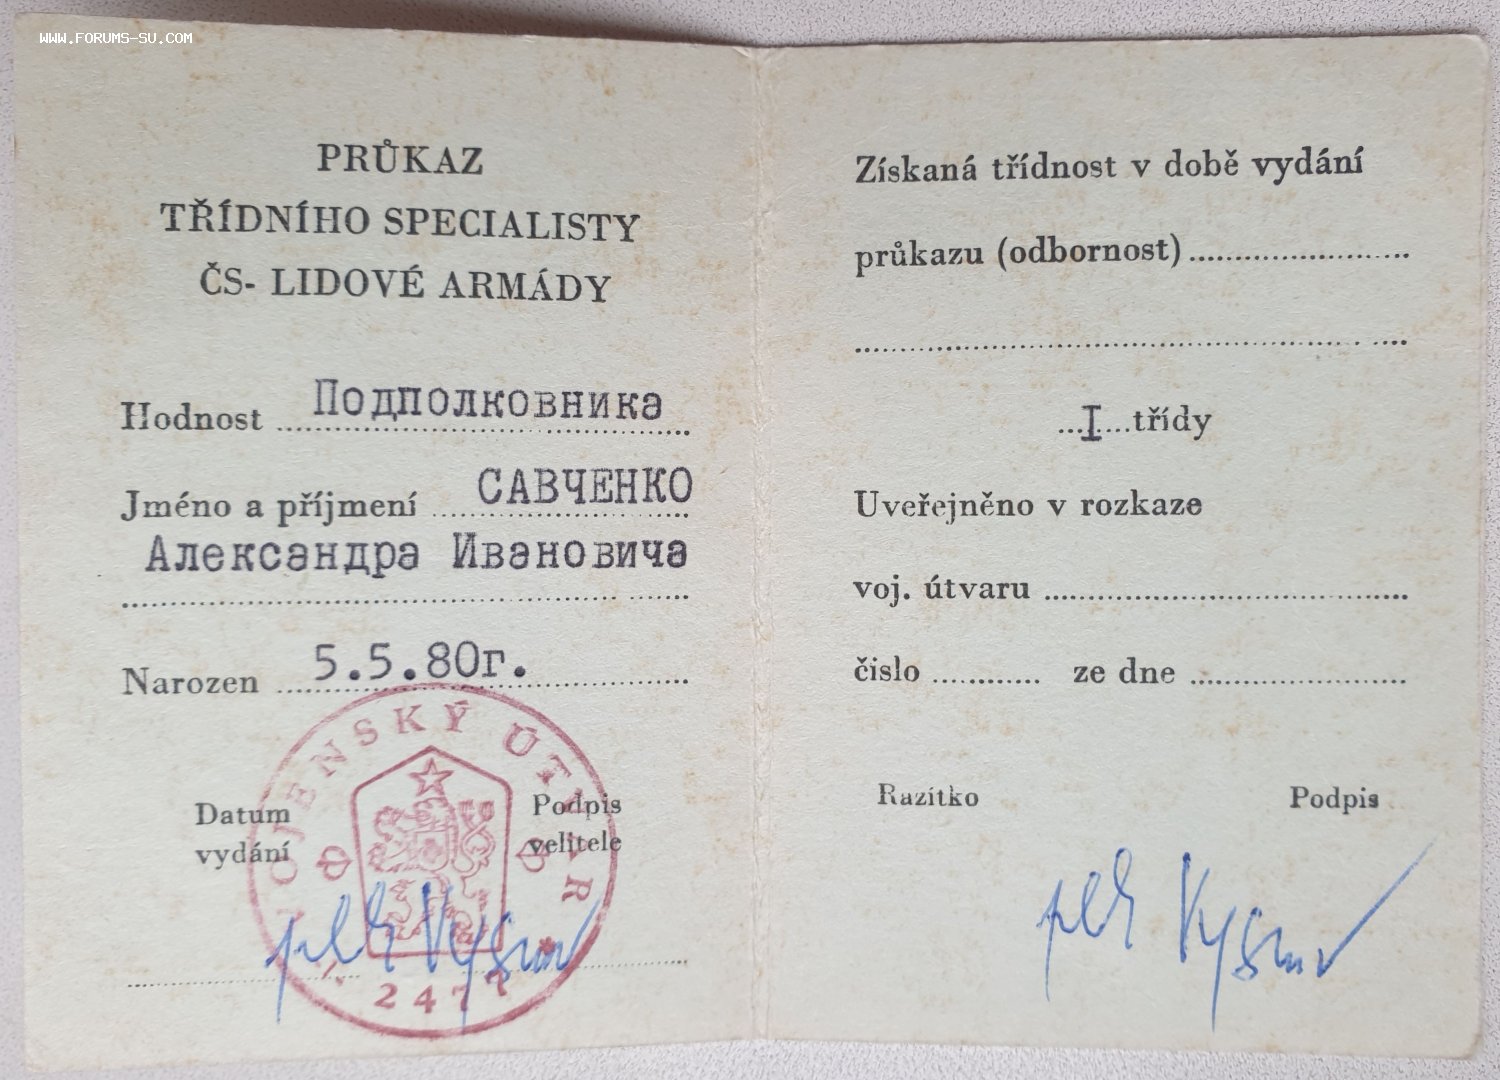 WWW.FORUMS-SU.COM
PRŮKAZ
TŘÍDNÍHO SPECIALISTY
ČS- LIDOVÉ ARMÁDY
Hodnost Подполковника
Jméno a příjmení САВЧЕНКО
Александра Ивановича
Narozen 5.5.80г.
VOJENSKÝ ÚTVAR
Datum vydání
Podpis velitele
plk
Získaná třídnost v době vydání
průkazu (odbornost)
I třídy
Uveřejněno v rozkaze
voj. útvaru
čislo ze dne
Razítko Podpis
plk